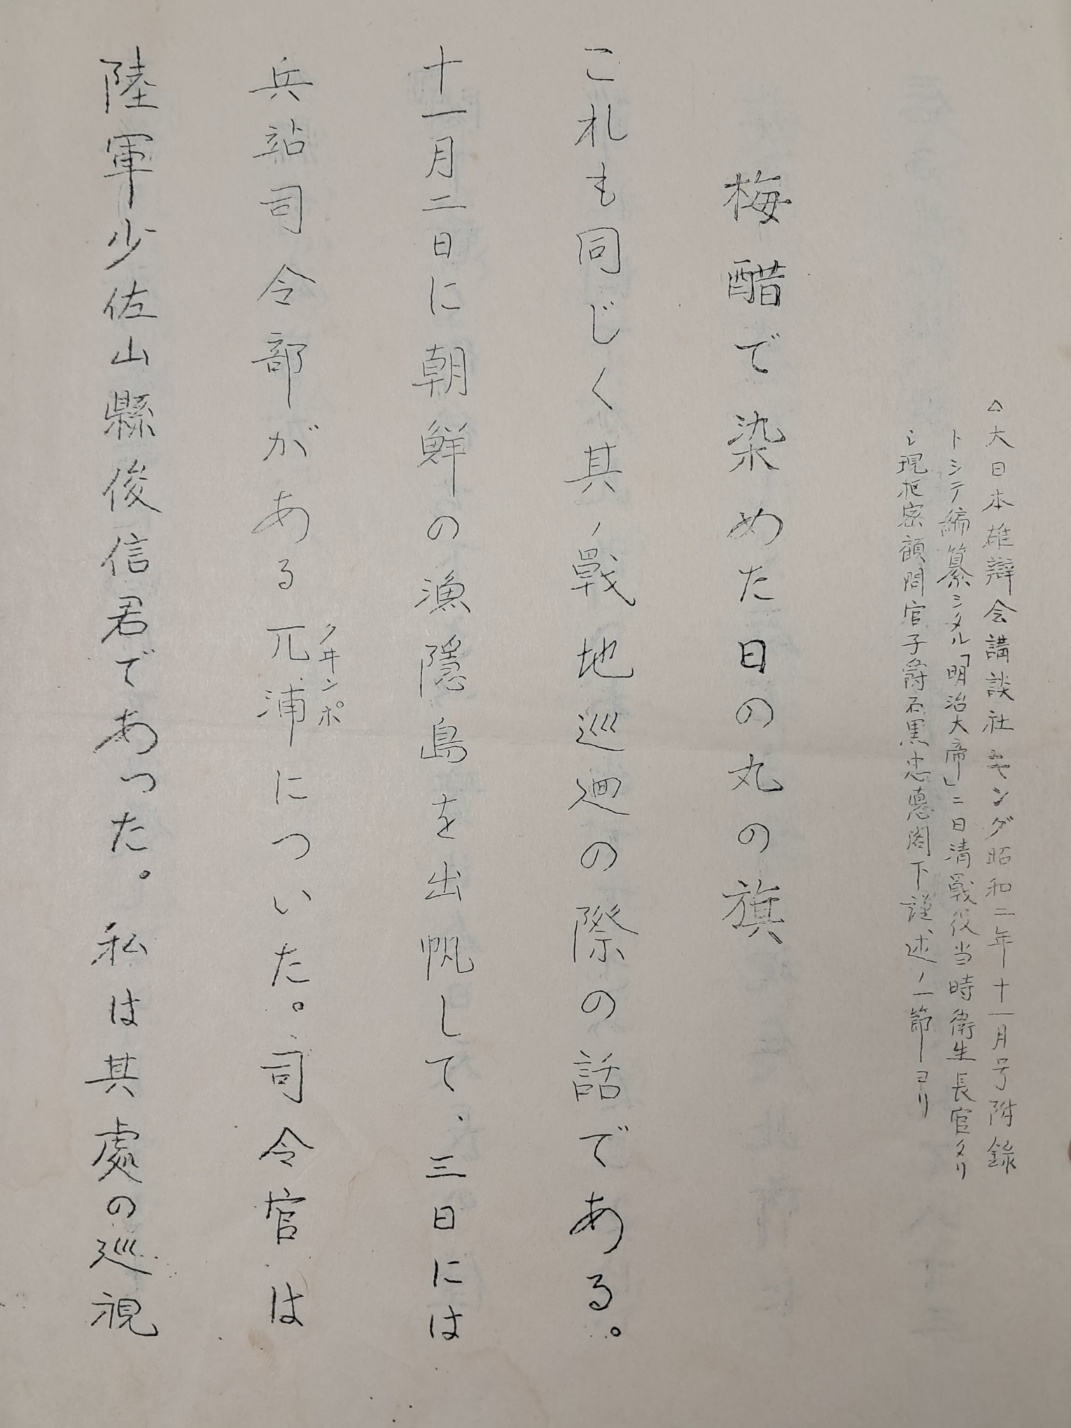 △大日本雄辯会講談社キング昭和二年十一月号附録
トシテ編纂シタル「明治大帝」ニ日清戰役当時衛生長官タリ
シ現枢密顧問官子爵石黒忠悳閣下謹述ノ一節ヨリ
梅醋で染めた日の丸の旗
これも同じく其ノ戰地巡廻の際の話である。
十一月二日に朝鮮の漁隠島を出帆して、三日には
兵站司令部がある兀浦についた。司令官は
クヰンポ
陸軍少佐山縣俊信君であった。私は其處の巡視